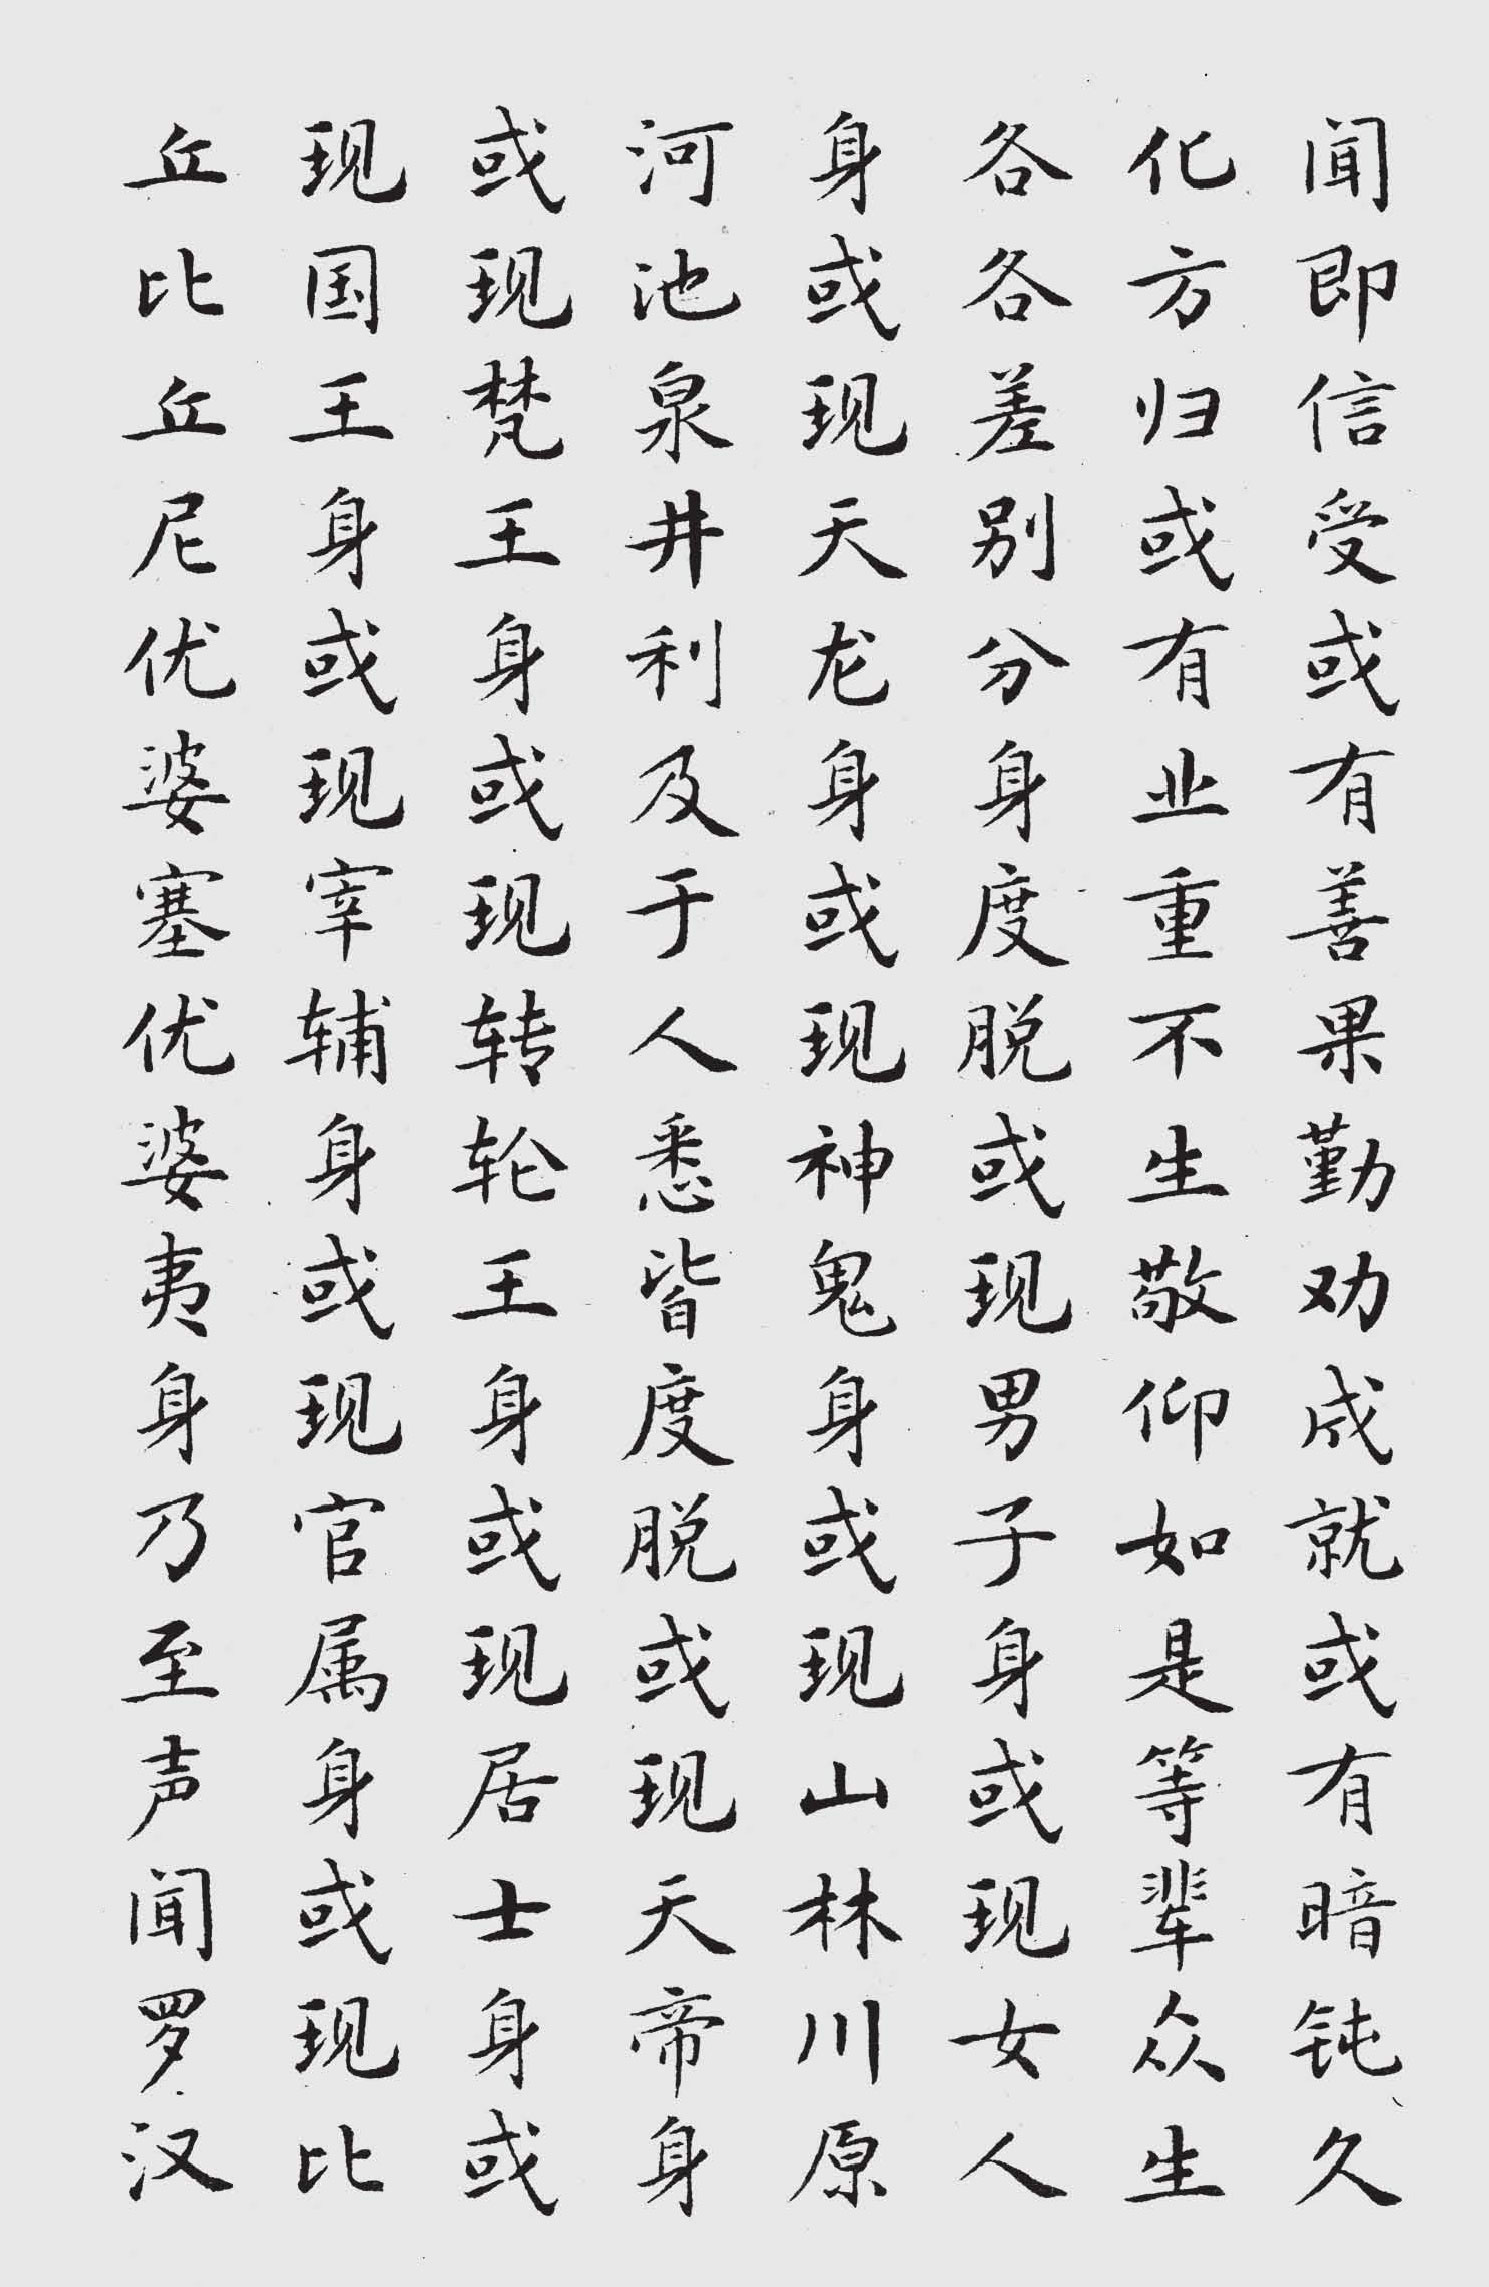 闻即信受或有善果勤劝成就或有暗钝久
化方归或有业重不生敬仰如是等辈众生
各各差别分身度脱或现男子身或现女人
身或现天龙身或现神鬼身或现山林川原
河池泉井利及于人悉皆度脱或现天帝身
或现梵王身或现转轮王身或现居士身或
现国王身或现宰辅身或现官属身或现比
丘比丘尼优婆塞优婆夷身乃至声闻罗汉